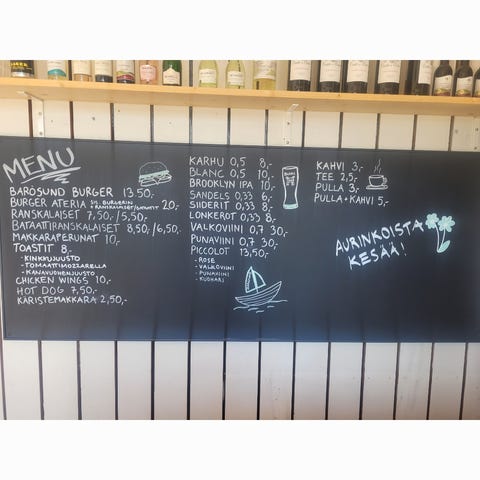 MENU
BARÖSUND BURGER 13.50,-
BURGER ATERIA SIS. BURGERIN + RANSKALAISET/BATAATIT 20,-
RANSKALAISET 7,50,-/5,50,-
BATAATTIRANSKALAISET 8,50,-/6,50,-
MAKKARAPERUNAT 10,-
TOASTIT 8,-
- KINKKUJUUSTO
- TOMAATTIMOZZARELLA
- KANAVUOHENJUUSTO
CHICKEN WINGS 10,-
HOT DOG 7,50,-
KÄRISTEMAKKARA 2,50,-
KARHU 0,5 8,-
BLANC 0,5 10,-
BROOKLYN IPA 10,-
SANDELS 0,33 6,-
SIIDERIT 0,33 8,-
LONKEROT 0,33 8,-
VALKOVIINI 0,7 30,-
PUNAVIINI 0,7 30,-
PICCOLOT 13,50,-
- ROSE
- VALKOVIINI
- PUNAVIINI
- KUOHARI
KAHVI 3,-
TEE 2,5,-
PULLA 3,-
PULLA+KAHVI 5,-
AURINKOISTA
KESÄÄ!